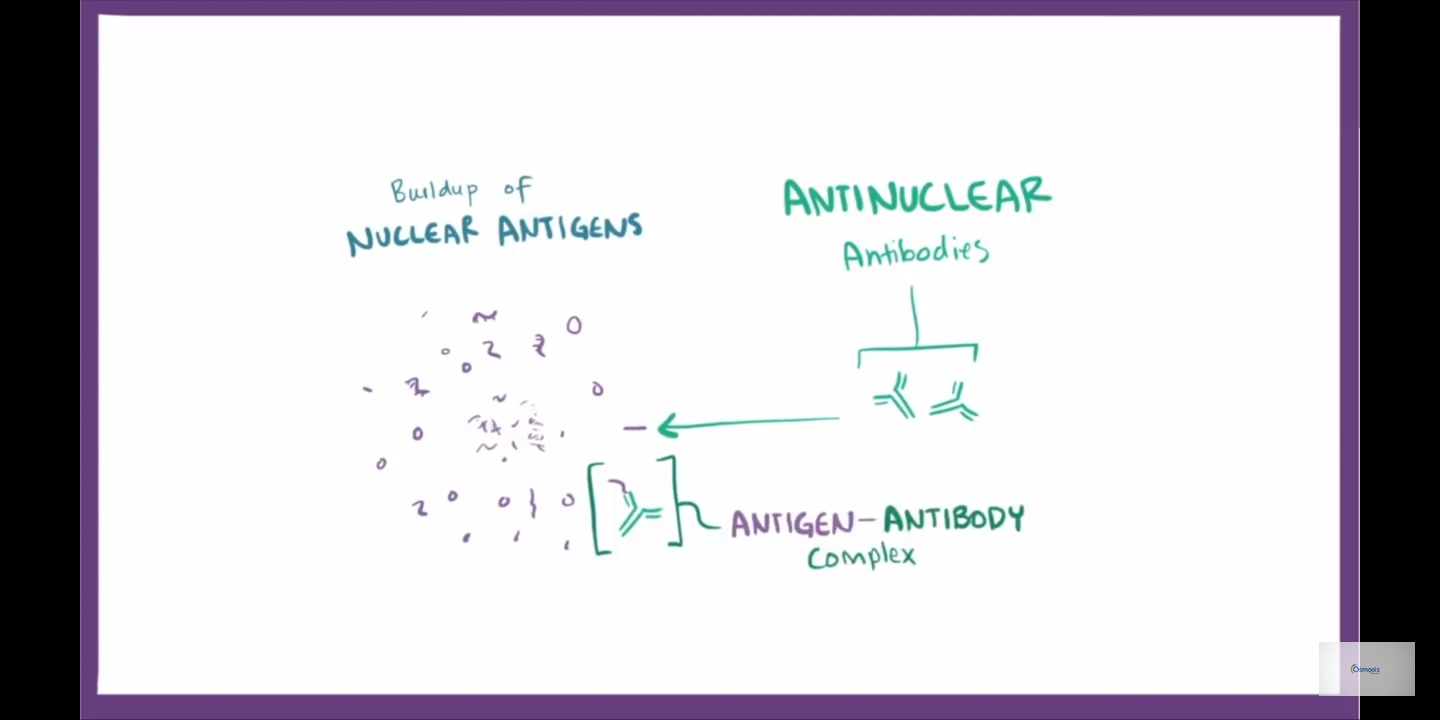 Buildup of
NUCLEAR ANTIGENS
ANTINUCLEAR
Antibodies
ANTIGEN-ANTIBODY
Complex
Osmosis